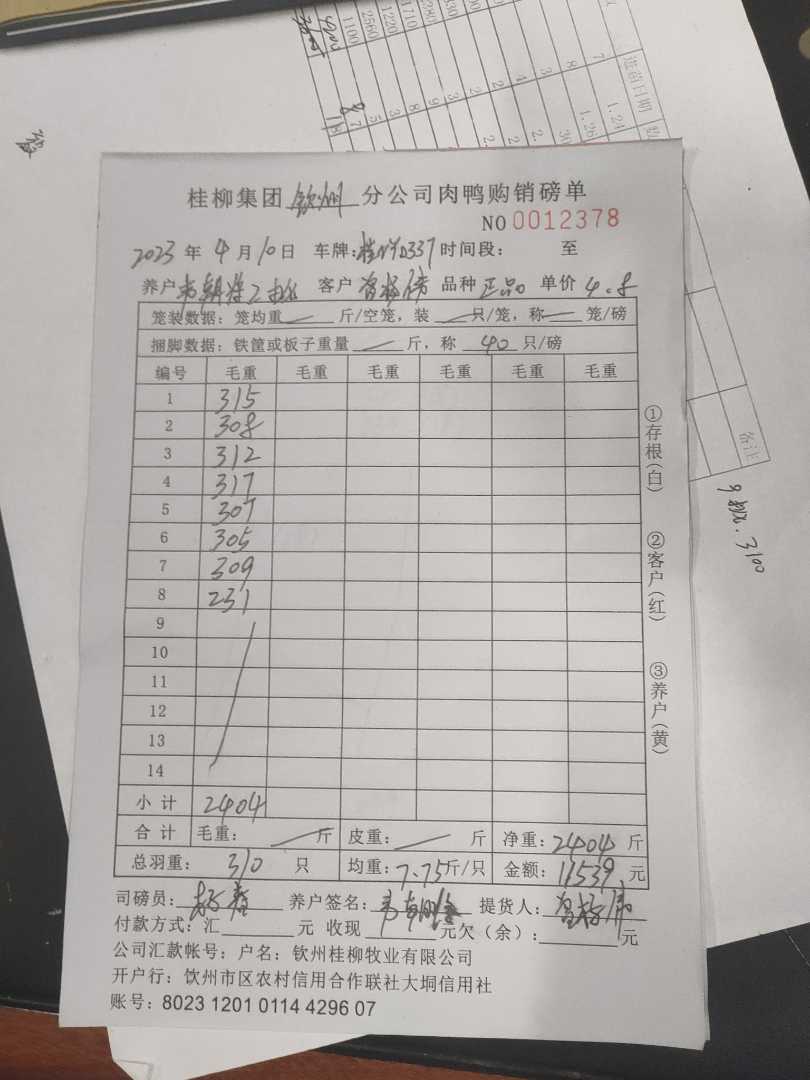 桂柳集团 钦州 分公司肉鸭购销磅单
NO 0012378
2023 年 4 月 10 日 车牌: D337 时间段: 至
养户 客户 品种 正品 单价 4.8
笼装数据: 笼均重 斤/空笼, 装 只/笼, 称 笼/磅
捆脚数据: 铁筐或板子重量 斤, 称 40 只/磅
编号 毛重 毛重 毛重 毛重 毛重 毛重
1 315
2 308
3 312
4 317
5 307
6 305
7 309
8 231
9
10
11
12
13
14
小计 2404
合计 毛重: 斤 皮重: 斤 净重: 2404 斤
总羽重: 310 只 均重: 7.75 斤/只 金额: 11539 元
司磅员: 养户签名: 提货人:
付款方式: 汇 元 收现 元欠(余): 元
公司汇款帐号: 户名: 钦州桂柳牧业有限公司
开户行: 钦州市区农村信用合作联社大垌信用社
账号: 8023 1201 0114 4296 07
①存根(白)
②客户(红)
③养户(黄)
进苗日期
1.24
1.26
备注
1100
2560
1220
1710
3100